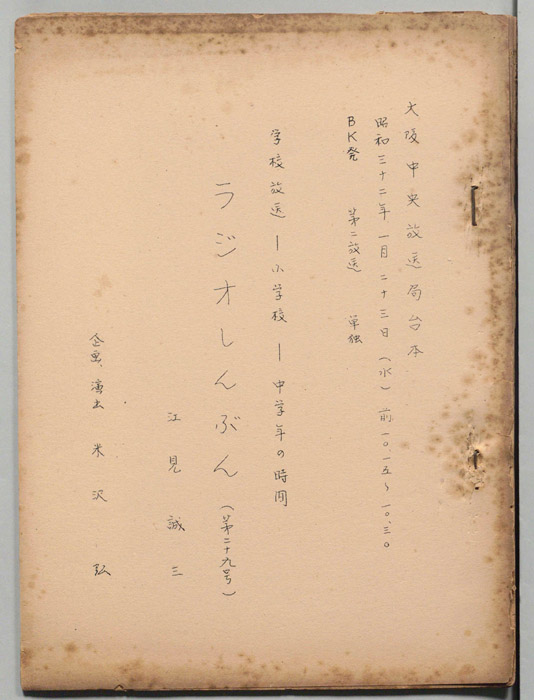 大阪中央放送局台本
昭和三十二年一月二十三日（水）前一〇.一五〜一〇.三〇
BK発 第二放送 単独
学校放送ー小学校ー中学年の時間
ラジオしんぶん（第二十九号）
江見誠三
企画、演出 米沢弘